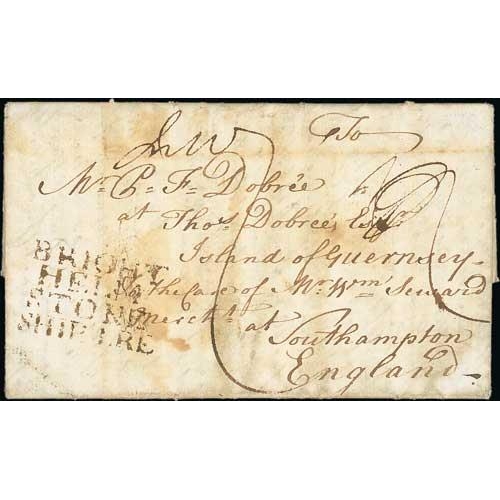 To
Mr. P. F. Dobrée
at Thos. Dobrée, Esqr.
Island of Guernsey
To the Care of Mr. Wm. Seward
Mercht. at
Southampton
England
BRIGHT
HELM
STONE
SHIP LRE